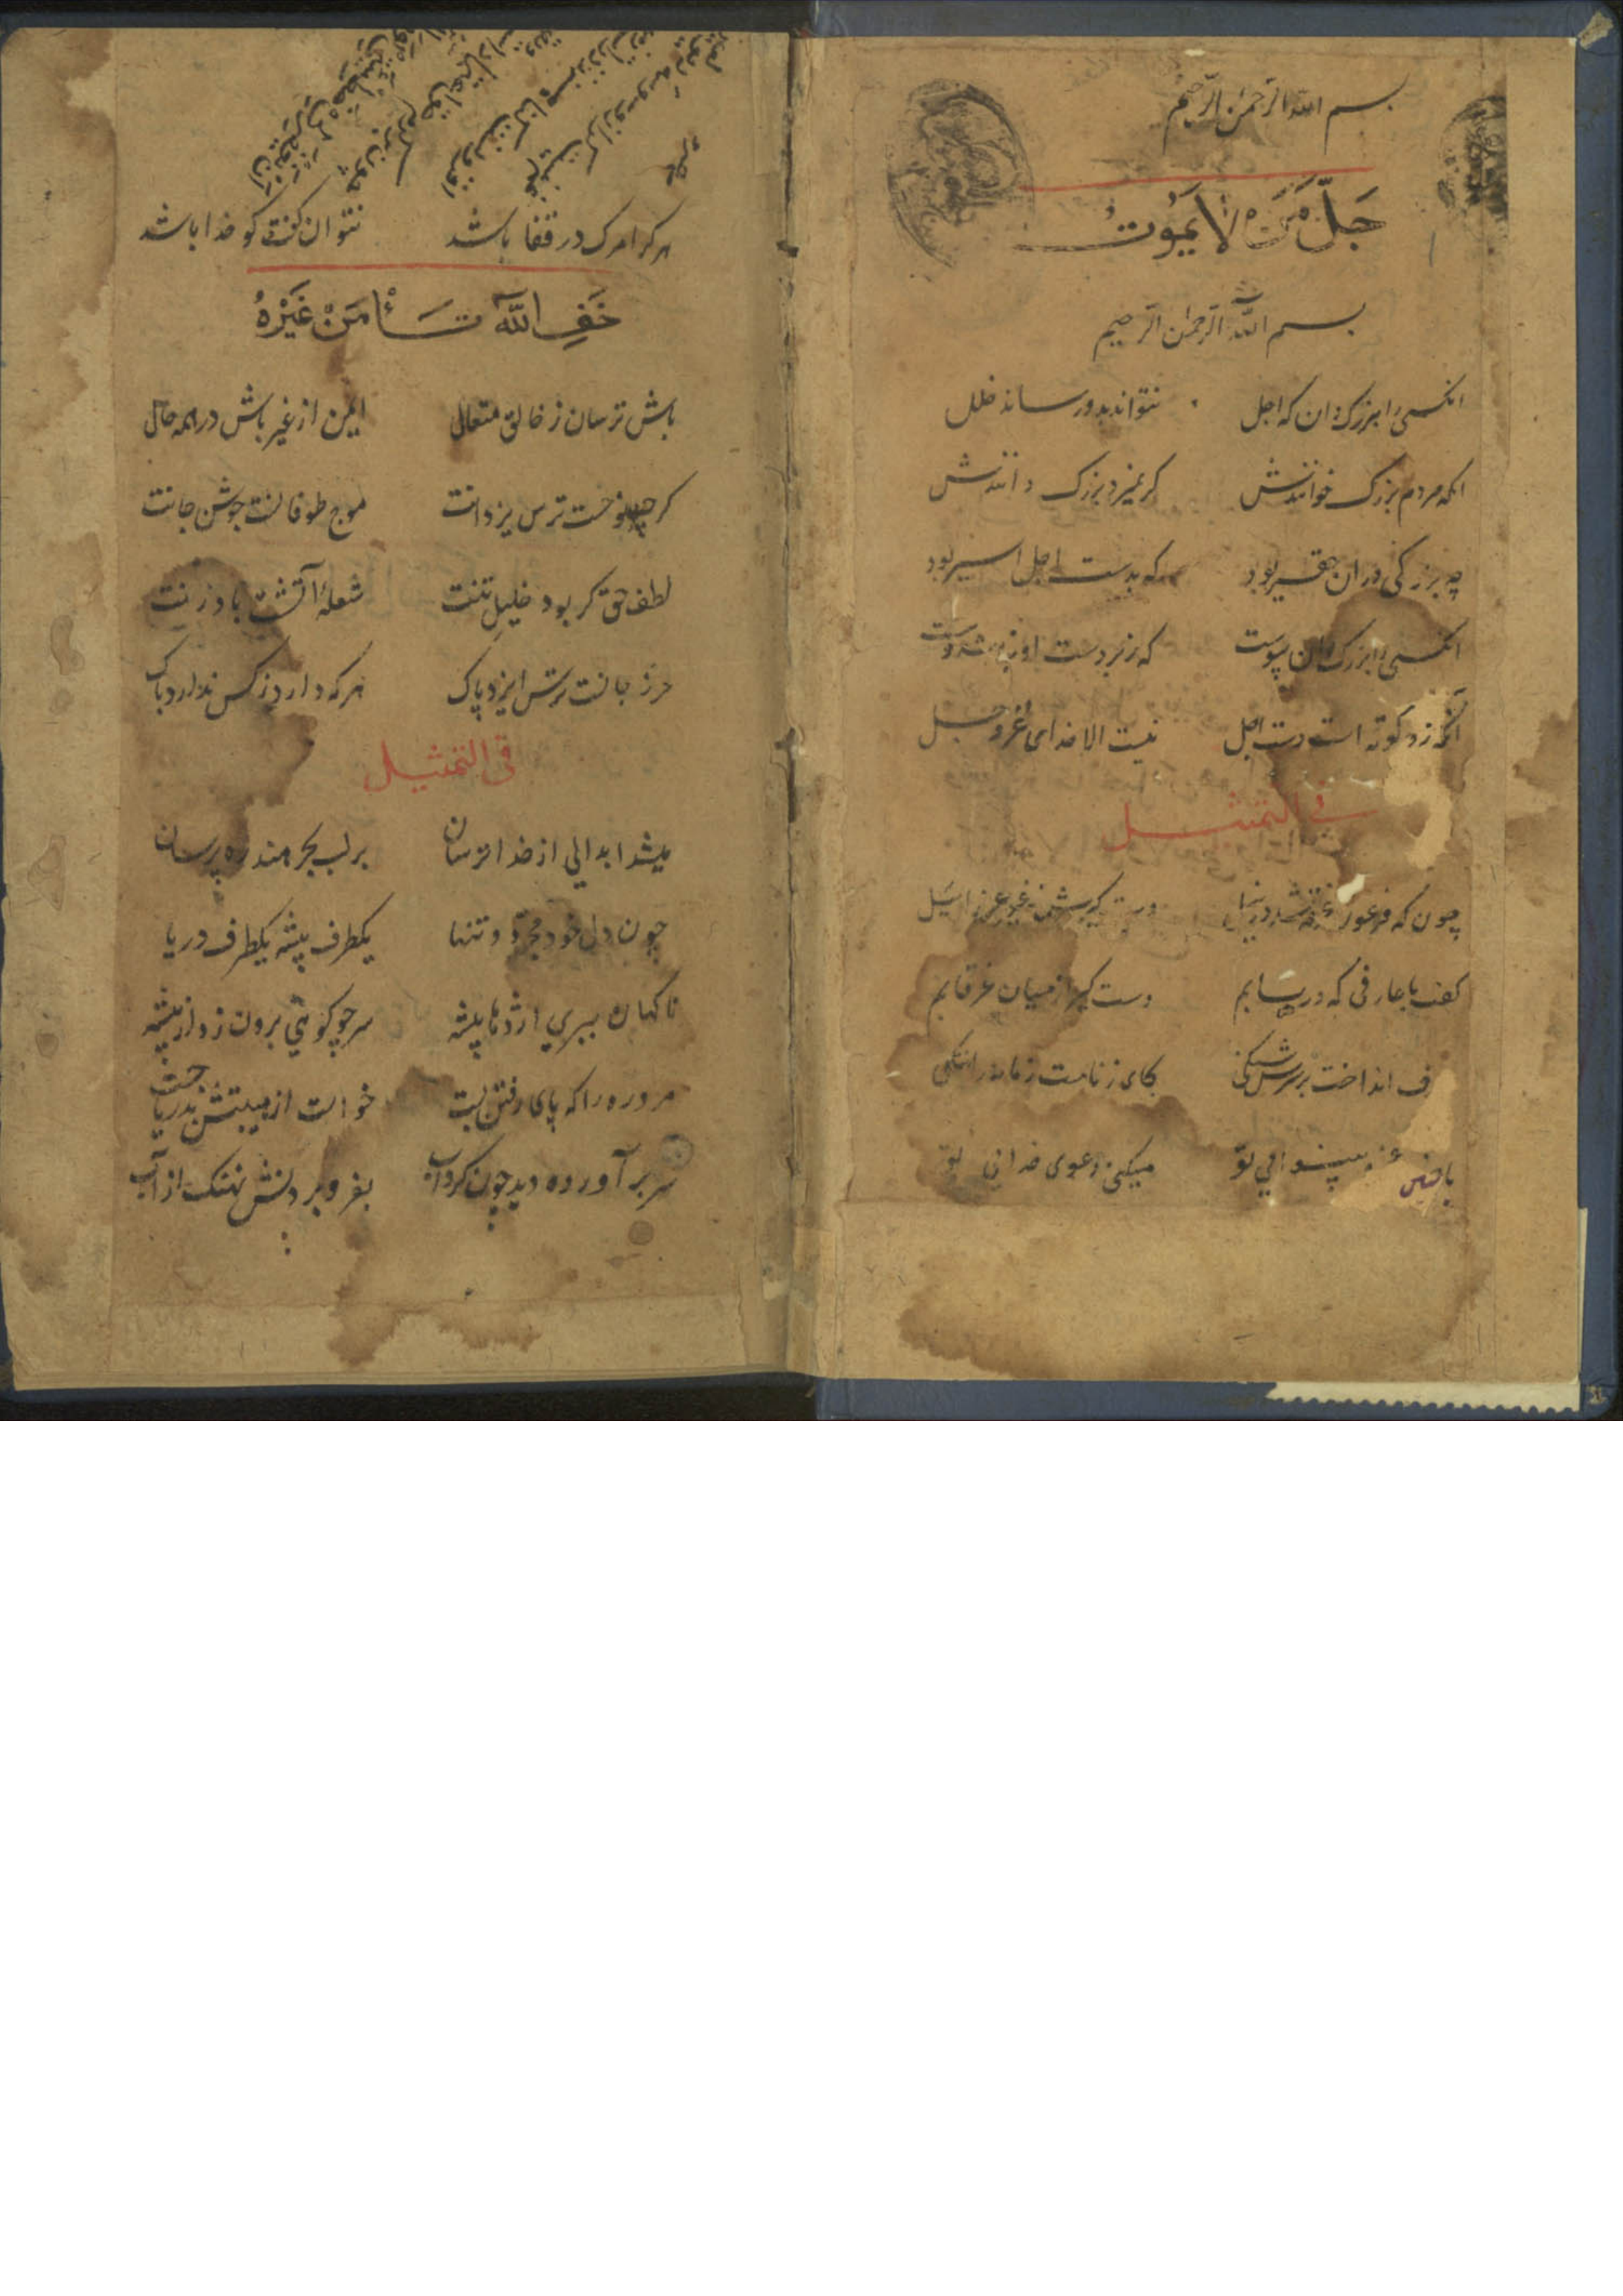 بسم الله الرحمن الرحیم
جَلَّ مَنْ لَا یَمُوتُ
بسم الله الرحمن الرحیم
انکسی را بزرک دان که اجل نتواند بدو رساند خلل
انکه مردم بزرک خوانندش کر نمیرد بزرک دانندش
چه بزرکی در ان حقیر بود که بدست اجل اسیر بود
انکسی را بزرک دان پیوست که زبردست او نباشد دست
آنکه زو کوته است دست اجل نیست الا خدای عز و جل
فی التمثیل
چون که فرعون غرقه شد در نیل دست کیرش نه غیر عزرائیل
کفت با عارفی که دریابم دست کیر از میان غرقابم
انداخت بر سرش سنکی کای ز نامت زمانه را ننکی
باچنین عجز و بینوائی تو میکنی دعوی خدائی تو
هر کرا مرک در قفا باشد نتوان کفت کو خدا باشد
خَفِ اللّٰهَ تَأْمَنْ غَیْرَهُ
باش ترسان ز خالق متعال ایمن از غیر باش در همه حال
کر چو نوحت ترس یزدانت موج طوفانت جوشن جانت
لطف حق کر بود خلیل تنت شعلهٔ آتشت باد زنت
حرز جانت ترس ایزد پاک هر که دارد ز کس ندارد باک
فی التمثیل
میشد ابدالی از خدا ترسان بر لب بحر هند ره پرسان
چون دل خود مجرد و تنها یکطرف بیشه یکطرف دریا
ناکهان ببری اژدها پیشه سر چو کوهی برون زد از بیشه
مرد ره را که پای رفتن بست خواست از هیبتش بدریا جست
سر بر آورده دید چون کرداب بفرو بردنش نهنک از آب